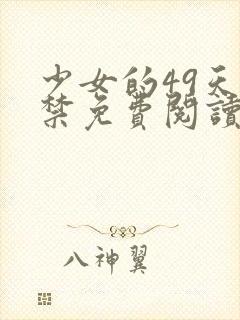 少女的49天
禁免費閱讀
八神翼